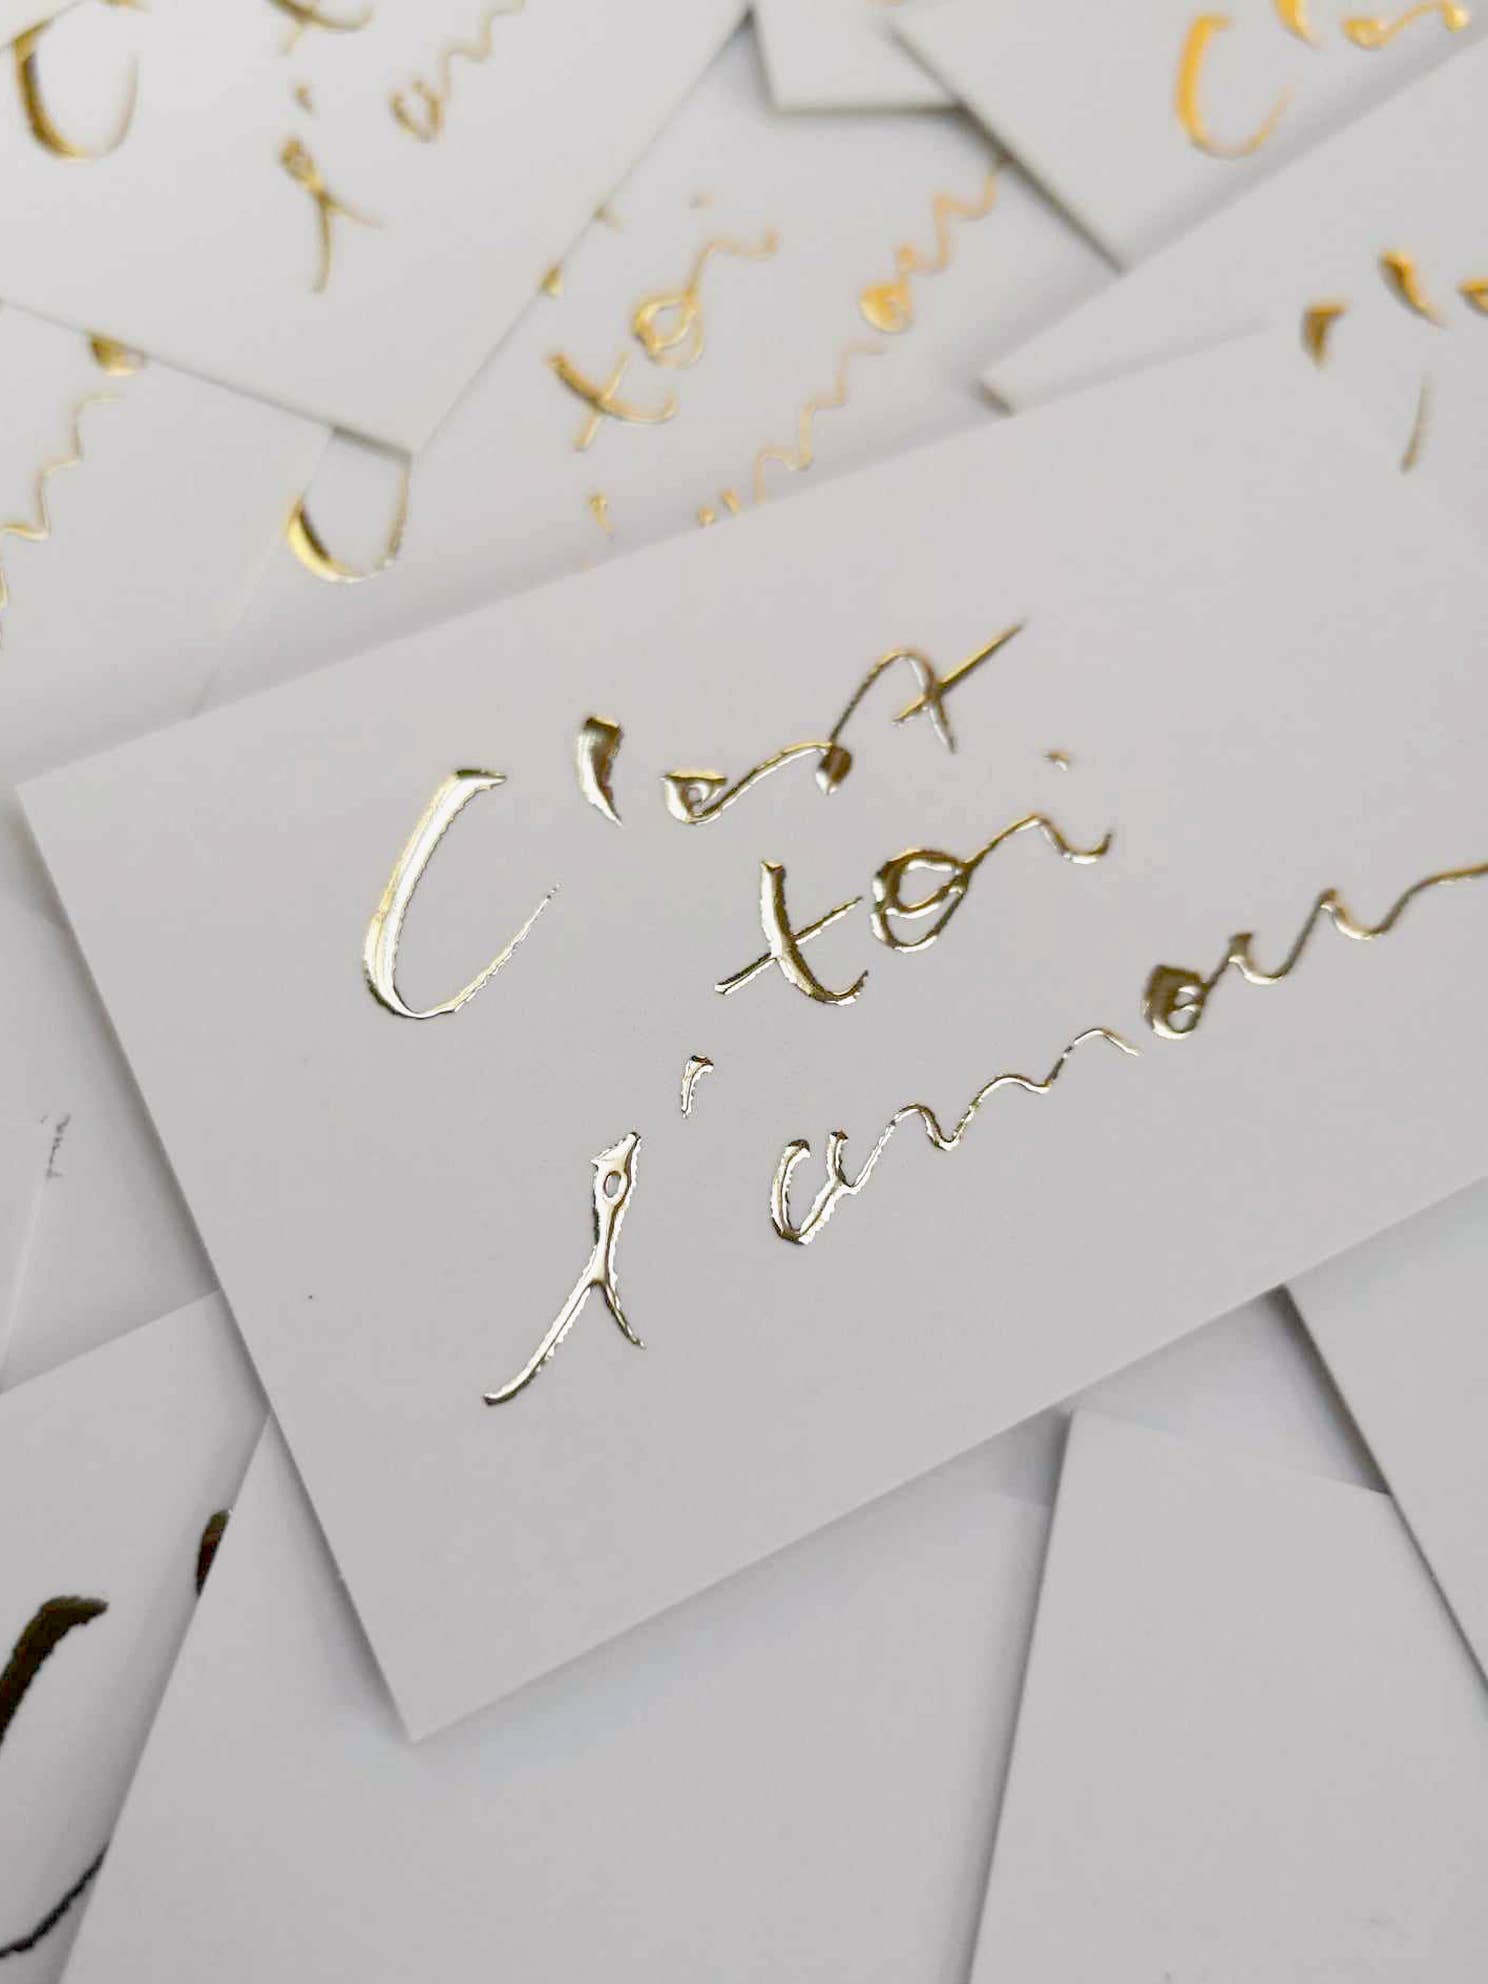 C'est
toi
l'amour